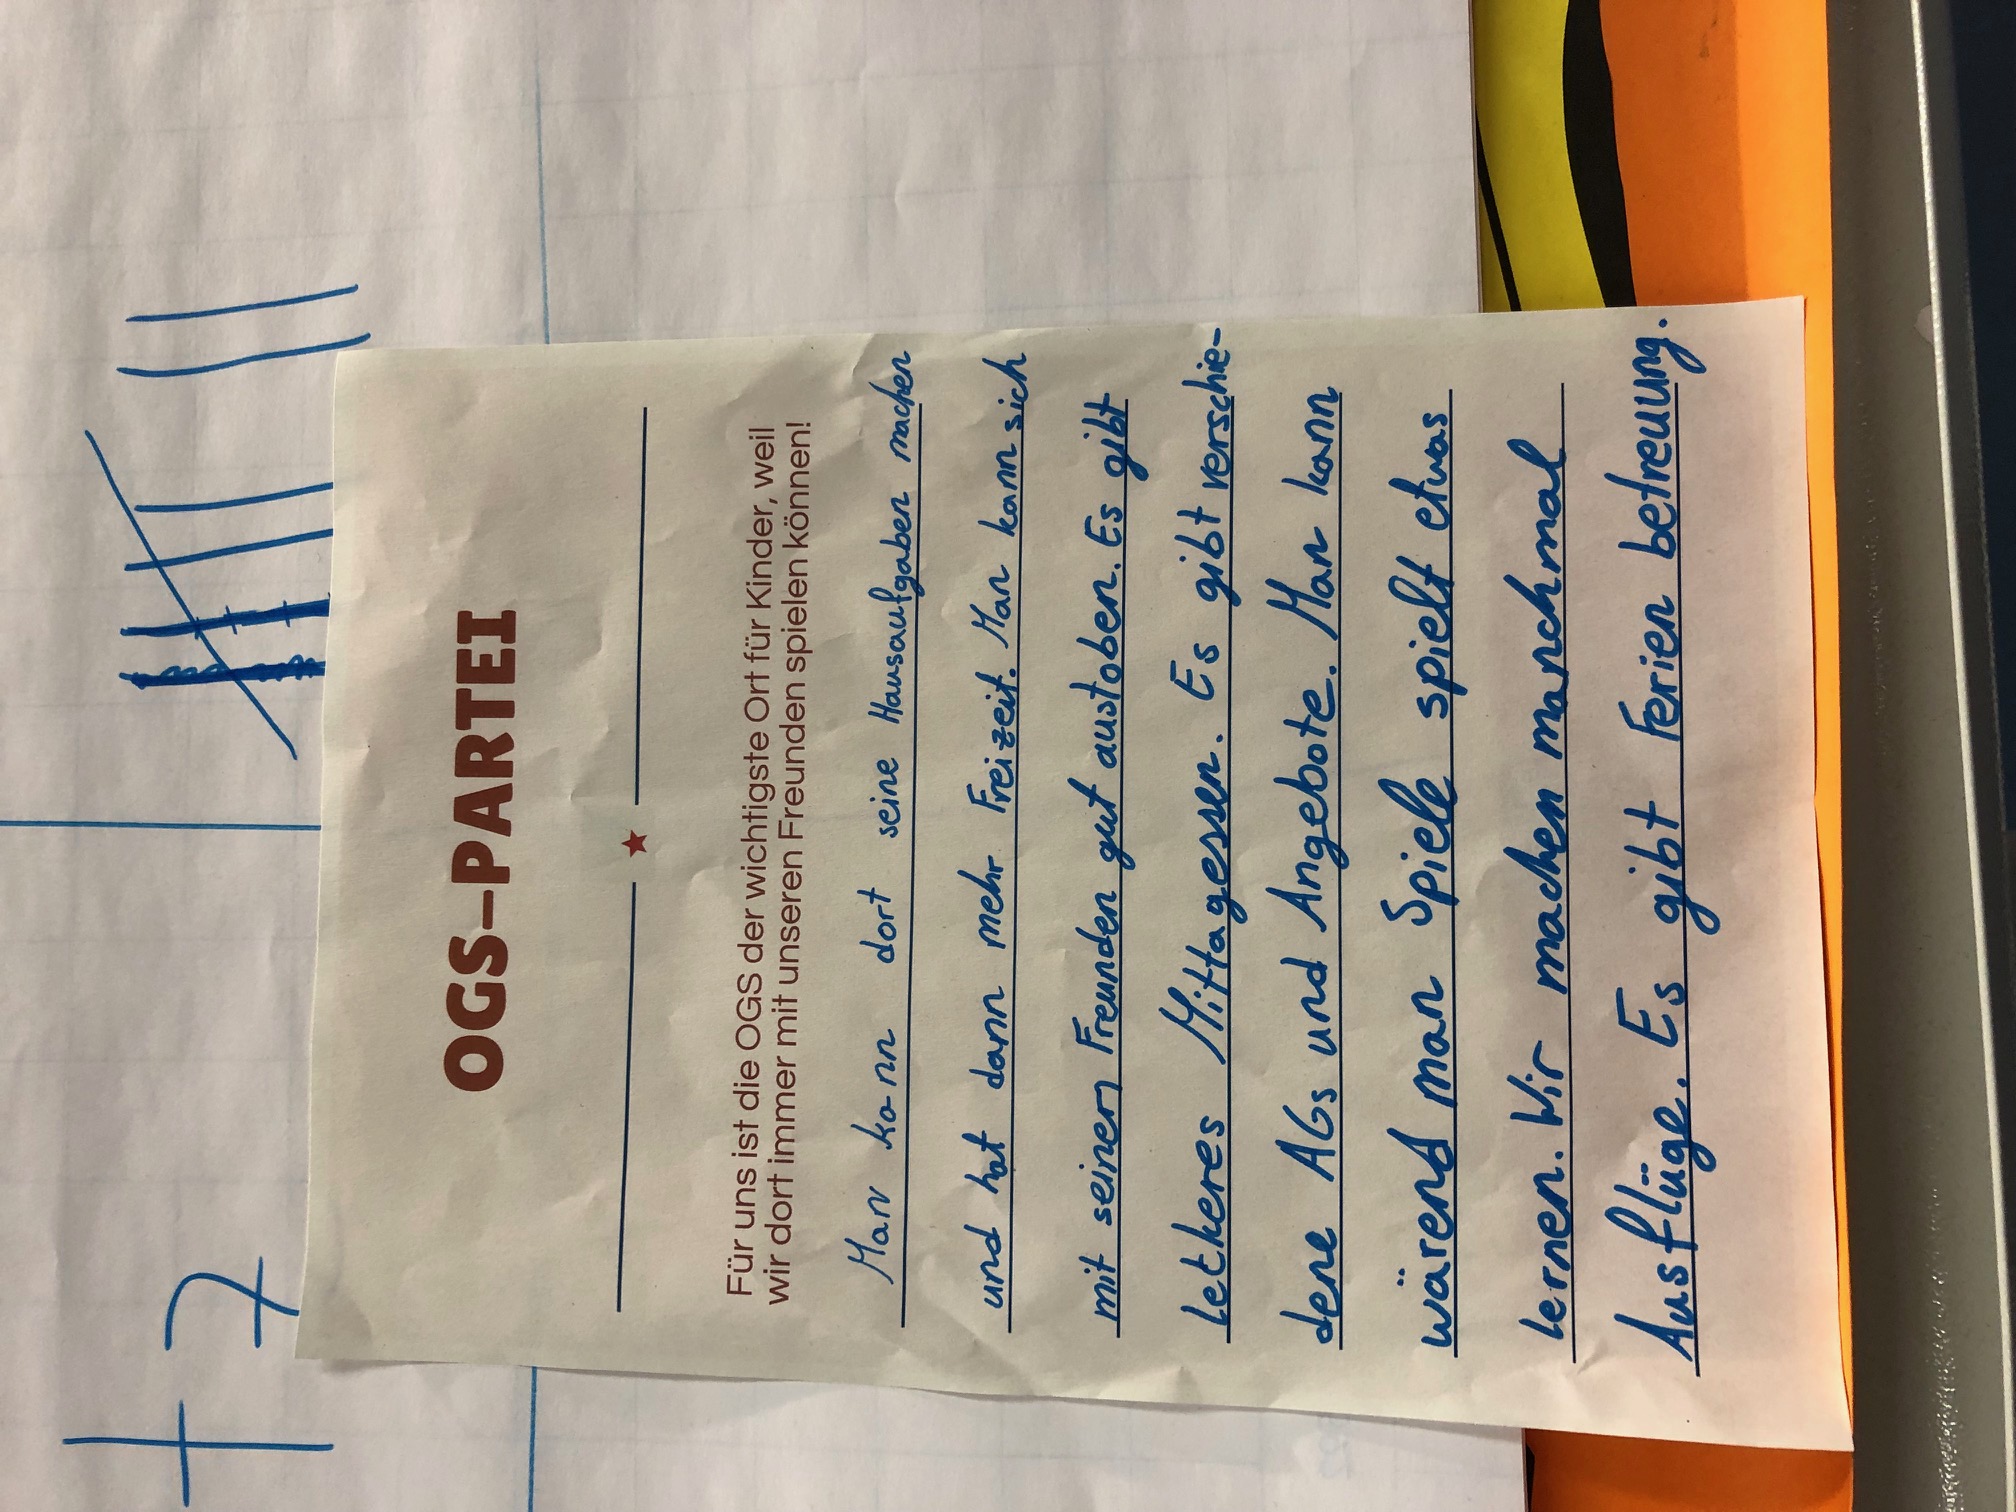 +7
OGS-PARTEI
Für uns ist die OGS der wichtigste Ort für Kinder, weil
wir dort immer mit unseren Freunden spielen können!
Man kann dort seine Hausaufgaben machen
und hat dann mehr Freizeit. Man kann sich
mit seinen Freunden gut austoben. Es gibt
letkeres Mittagessen. Es gibt verschie-
dene AGs und Angebote. Man kann
wärend man Spiele spielt etwas
lernen. Wir machen manchmal
Ausflüge. Es gibt Ferien betreuung.